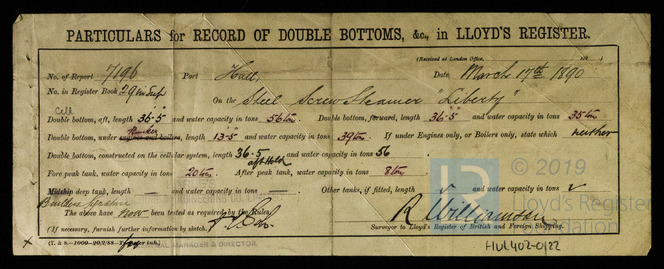 PARTICULARS for RECORD OF DOUBLE BOTTOMS, &c., in LLOYD'S REGISTER.
(Received at London Office, 18 )
No. of Report 7196 Port Hull, Date March 17th 1890
No. in Register Book 29 in Sup
On the Steel Screw Steamer "Liberty"
Cell
Double bottom, aft, length 36·5 and water capacity in tons 56 tons Double bottom, forward, length 36·5 and water capacity in tons 35 tons
Bunker
Double bottom, under engines and boilers, length 13·5 and water capacity in tons 39 tons If under Engines only, or Boilers only, state which neither
Double bottom, constructed on the cellular system, length 36·5 and water capacity in tons 56 .
aft Hold
Fore peak tank, water capacity in tons 20 tons After peak tank, water capacity in tons 8 tons
Midship deep tank, length — and water capacity in tons — Other tanks, if fitted, length ✓ and water capacity in tons ✓
Builders signature
The above have now been tested as required by the Rules
(If necessary, furnish further information by sketch.)
R Williamson
Surveyor to Lloyd's Register of British and Foreign Shipping.
(T. & S.—1000—20/2/88—Transfer ink.)
GENERAL MANAGER & DIRECTOR.
HUL402-0122
© 2019
Lloyd's Register
Foundation